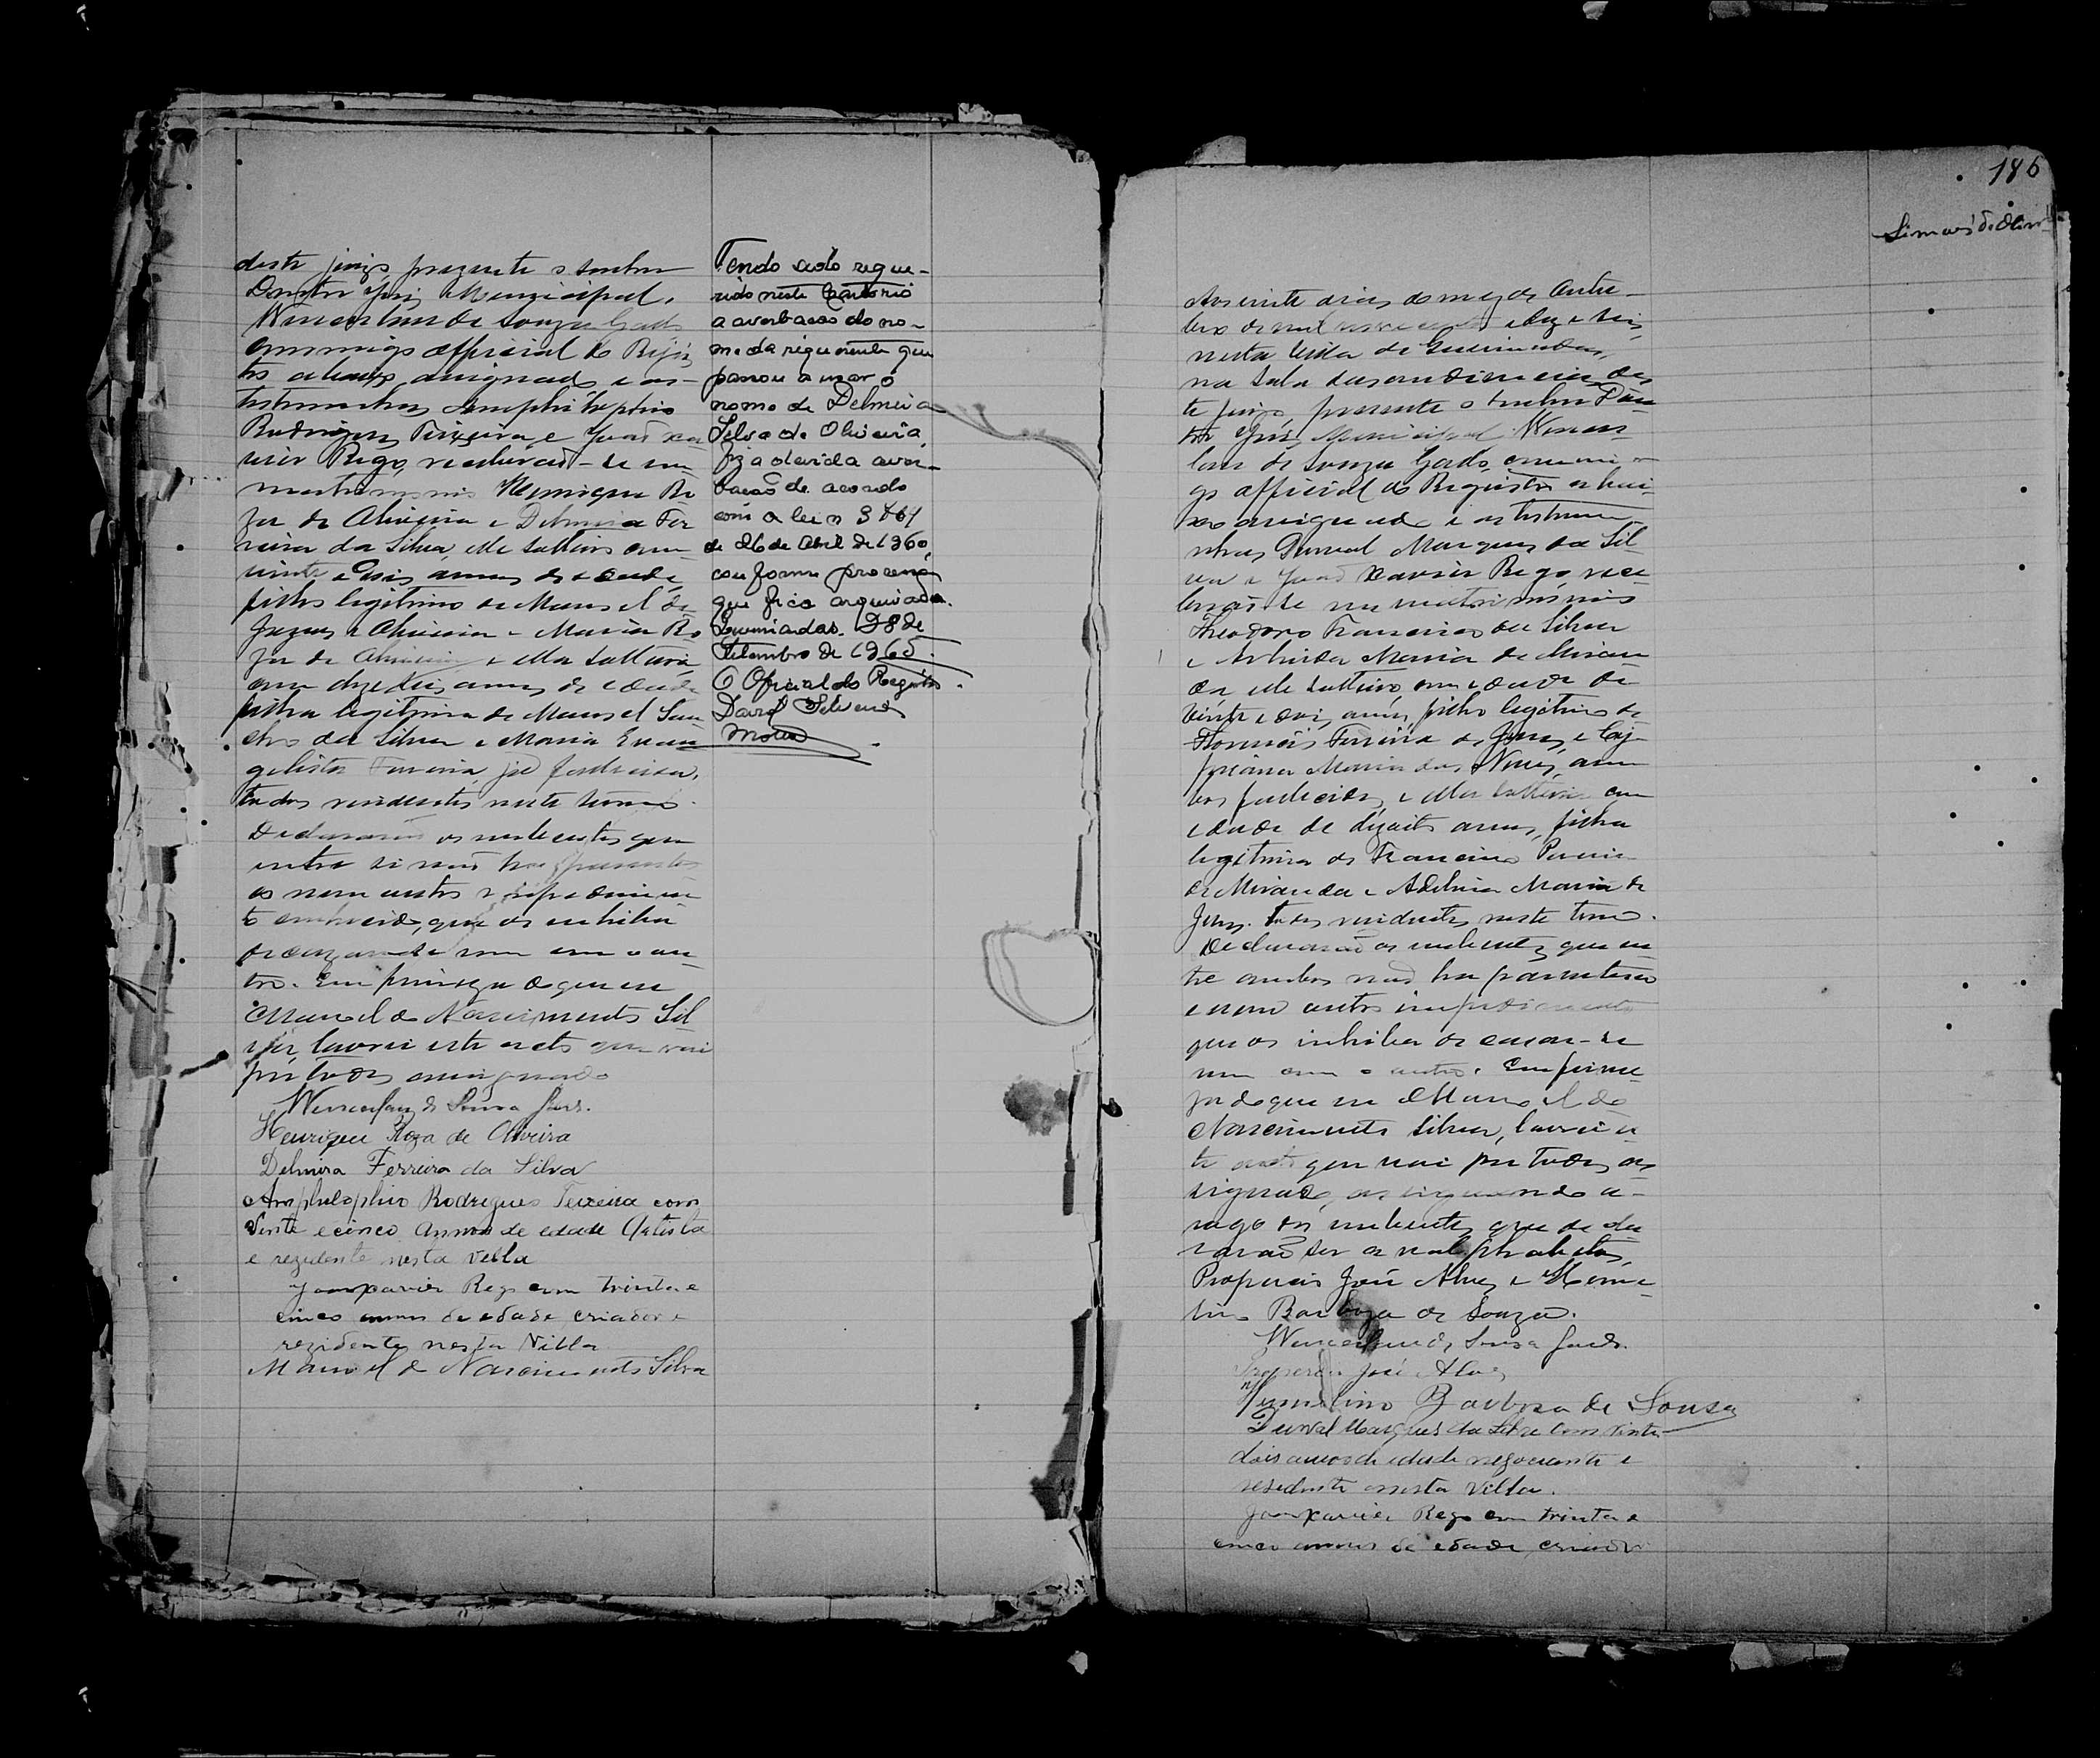 deste juizo, presente o senhor
Doutor Juiz Municipal,
Wencesláu de Souza Gues
commigo official do Regis
tro abaixo assignado e as
testemunhas Amphilophio
Rodrigues Teixeira e João Xa
vier Rego, receberão-se em
matrimonio Henrique Ro
za de Oliveira e Delmira Fer
reira da Silva, elle solteiro com
vinte e dois annos de edade,
filho legitimo de Manoel de
Jezus e Oliveira e Maria Ro
za de Oliveira e ella solteira,
com dezeseis annos de edade
filha legitima de Manoel San
chos da Silva e Maria Evan
gelista Ferreira, já fallecida,
todos residentes neste termo.
Declararão os nubentes que
entre si não ha parentes
co nem outro impedimen
to conhecido, que os inhiba
de cazar-se um com o ou
tro. Em firmeza do que eu
Manoel do Nascimento Sil
va, lavrei este acto que vai
por todos assignado
Wenceslau de Souza Gues.
Henrique Roza de Oliveira
Delmira Ferreira da Silva
Amphilophio Rodrigues Teixeira com
vinte e cinco annos de edade Artista
e rezidente nesta Villa
João Xavier Rego com trinta e
cinco annos de edade criador e
rezidente nesta Villa
Manoel do Nascimento Silva
Tendo sido reque-
rido neste Cartorio
a averbação do no-
me da requerente que
passou a usar o
nome de Delmira
Silva de Oliveira,
fiz a devida aver-
bação de acordo
com a lei n 3764
de 26 de Abril de 1960,
conforme processo
que fica arquivado.
Queimadas. 28 de
Setembro de 1965.
O Oficial do Registro.
David Silverio
Moura
186
Aos vinte dias do mez de Outu-
bro de mil novecentos e dez e seis,
nesta Villa de Queimadas,
na sala das audiencias des
te juizo, presente o senhor Dou
tor Juiz Municipal Wences
lau de Souza Gues, commi
go official do Registro abai
xo assignado e as testemu
nhas Durval Marques da Sil
va e João Xavier Rego, rece
berão-se em matrimonio
Theodoro Francisco da Silva
e Arlinda Maria de Miran
da, elle solteiro, com edade de
vinte e dois annos, filho legitimo de
Ferreira de Jesus e
Maria das Neves, am
bos fallecidos, e ella solteira com
edade de dezoito annos, filha
legitima de Francisco Pereira
de Miranda e Adelina Maria de
Jesus. Todos residentes neste termo.
Declararão os nubentes que en
tre ambos não ha parentesco
e nem outro impedimento
que os inhiba de cazar-se
um com o outro. Em firme
za do que eu Manoel do
Nascimento Silva, lavrei es
te acto que vai por todos as
signado, assignando a
rogo dos nubentes que decla
rarão ser analphabetos,
Prosperio José Alves e
Barboza de Souza.
Wenceslau de Souza Gues.
José Alves
Barbosa de Sousa
Durval Marques da Silva com vinte
dois annos de edade negociante e
residente nesta Villa.
João Xavier Rego com trinta e
cinco annos de edade, criador